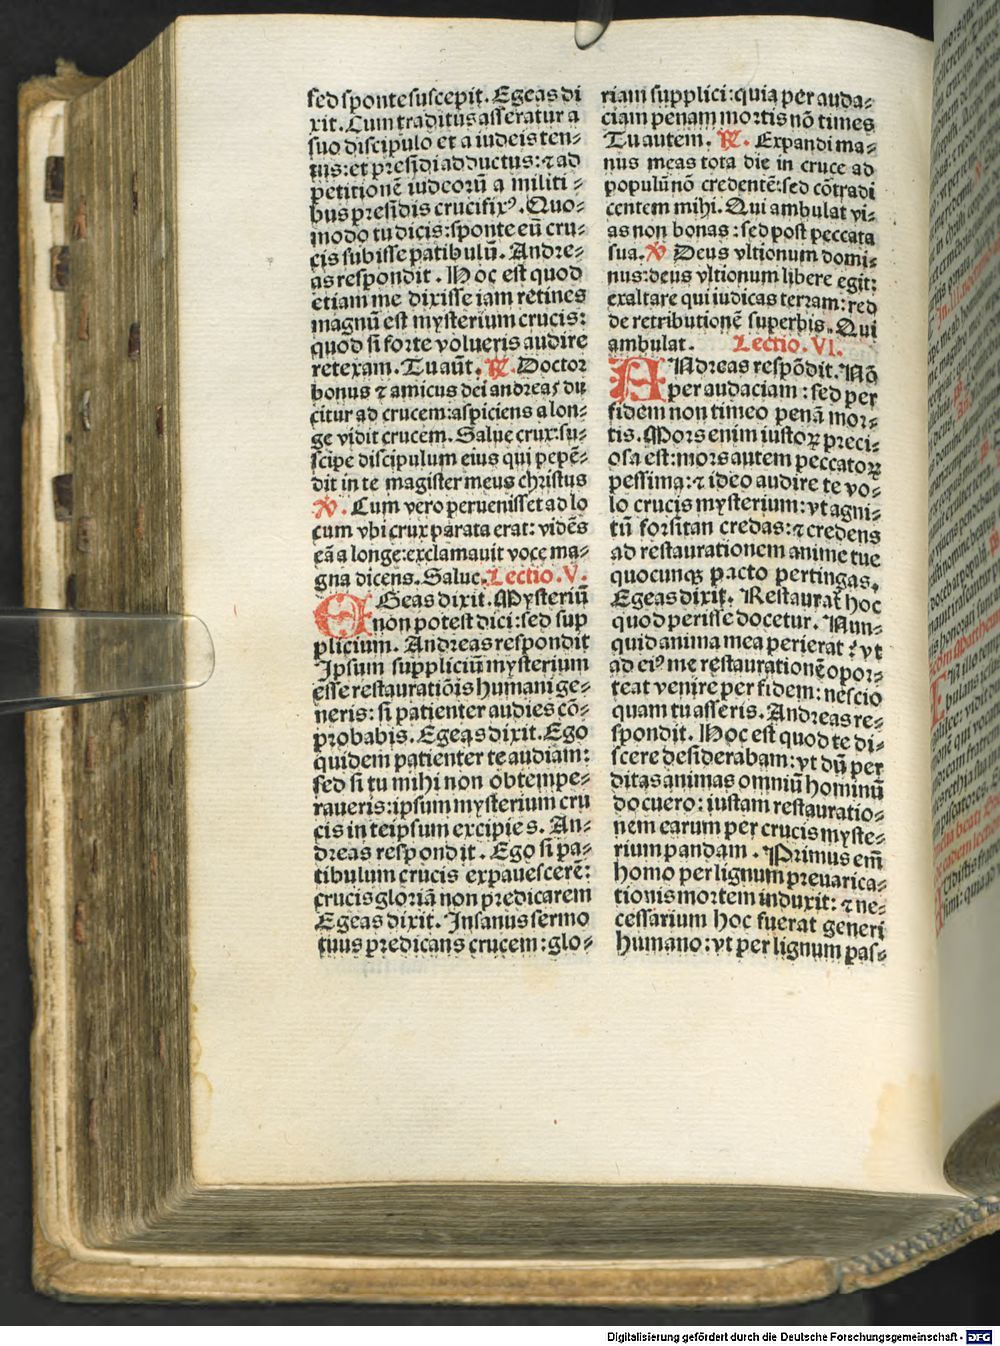 sed sponte suscepit. Egeas di
xit. Cum traditus asseratur a
suo discipulo et a iudeis ten⸗
tus: et presidi adductus: ⁊ ad
petitionē iudeorū a militi⸗
bus presidis crucifixꝰ. Quo⸗
modo tu dicis: sponte eū cru⸗
cis subisse patibulū. Andre⸗
as respondit. Hoc est quod
etiam me dixisse iam retines
magnū est mysterium crucis:
quod si forte volueris audire
retexam. Tu aūt. ℟. Doctor
bonus ⁊ amicus dei andreas du
citur ad crucem: aspiciens a lon⸗
ge vidit crucem. Salue crux: su⸗
scipe discipulum eius qui pepē⸗
dit in te magister meus christus
℣. Cum vero peruenisset ad lo
cum vbi crux parata erat: vidēs
eā a longe: exclamauit voce ma⸗
gna dicens. Salue. Lectio. V.
EGeas dixit. Mysteriū
non potest dici: sed sup
plicium. Andreas respondit
Ipsum suppliciū mysterium
esse restauratiōis humani ge⸗
neris: si patienter audies cō⸗
probabis. Egeas dixit. Ego
quidem patienter te audiam:
sed si tu mihi non obtempe⸗
raueris: ipsum mysterium cru
cis in teipsum excipies. An⸗
dreas respondit. Ego si pa⸗
tibulum crucis expauescerē:
crucis gloriā non predicarem
Egeas dixit. Insanus sermo
tuus predicans crucem: glo⸗
riam supplici: quia per auda⸗
ciam penam mortis nō times
Tu autem. ℟. Expandi ma⸗
nus meas tota die in cruce ad
populū nō credentē: sed cōtradi
centem mihi. Qui ambulat vi⸗
as non bonas: sed post peccata
sua. ℣ Deus vltionum domi⸗
nus: deus vltionum libere egit:
exaltare qui iudicas terram: red
de retributionē superbis. Qui
ambulat. Lectio. VI.
ANdreas respōdit. Nō
per audaciam: sed per
fidem non timeo penā mor⸗
tis. Mors enim iustoꝝ preci⸗
osa est: mors autem peccatoꝝ
pessima: ⁊ ideo audire te vo⸗
lo crucis mysterium: vt agni⸗
tū forsitan credas: ⁊ credens
ad restaurationem anime tue
quocunqꝫ pacto pertingas.
Egeas dixit. Restaurat̄ hoc
quod perisse docetur. Nun⸗
quid anima mea perierat? vt
ad eiꝰ me restaurationē opor⸗
teat venire per fidem: nescio
quam tu asseris. Andreas re⸗
spondit. Hoc est quod te di⸗
scere desiderabam: vt dū per
ditas animas omniū hominū
docuero: iustam restauratio⸗
nem earum per crucis myste⸗
rium pandam. Primus em̄
homo per lignum preuarica⸗
tionis mortem induxit: ⁊ ne⸗
cessarium hoc fuerat generi
humano: vt per lignum pas⸗
Digitalisierung gefördert durch die Deutsche Forschungsgemeinschaft - DFG